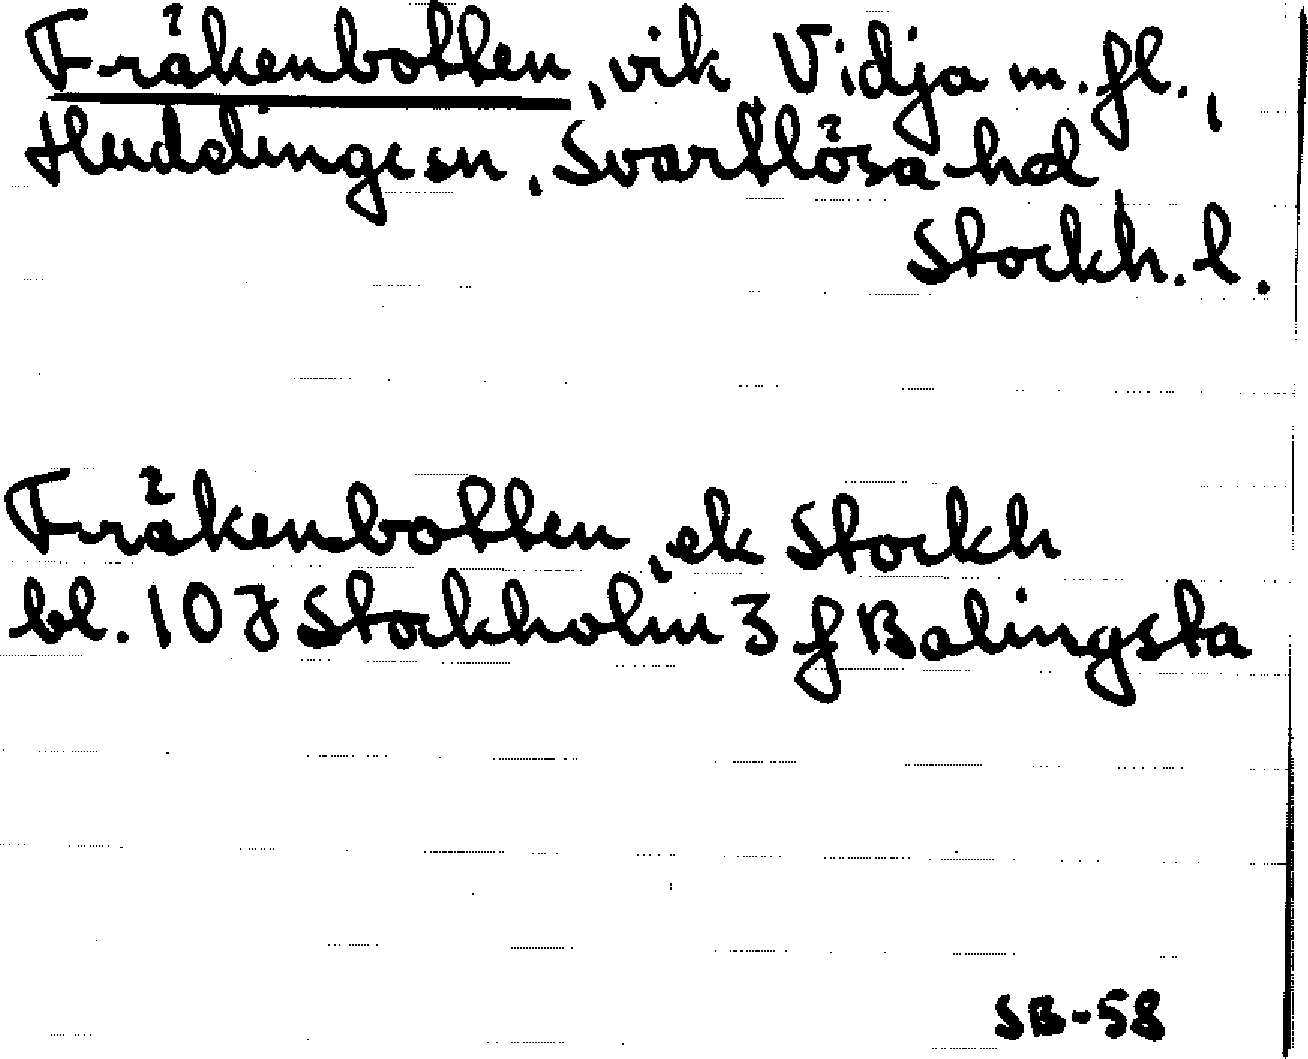 Fräkenbotten, vik, Vidja m.fl.,
Huddinge sn, Svartlösa hd
Stockh. l.
Fräkenbotten, ek Stockh
bl. 10 J Stockholm 3 f Balingsta
SB-58